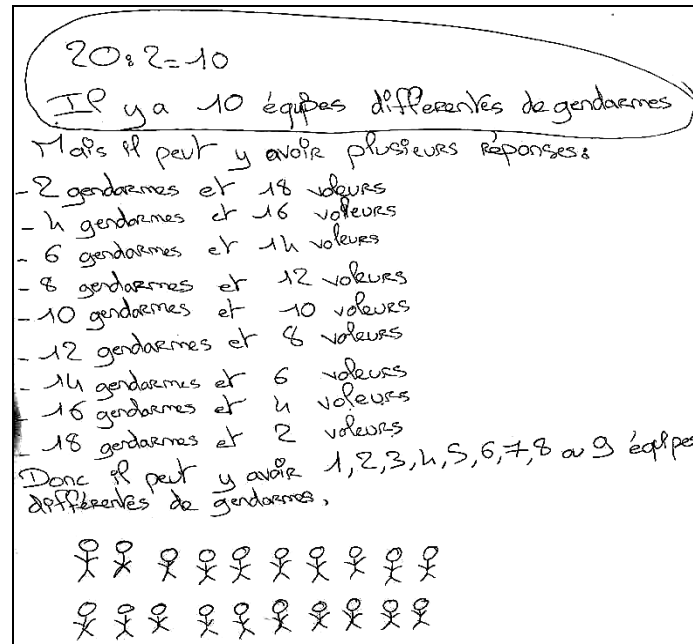 20:2=10
Il y a 10 équipes differentes de gendarmes
Mais il peut y avoir plusieurs réponses:
- 2 gendarmes et 18 voleurs
- 4 gendarmes et 16 voleurs
- 6 gendarmes et 14 voleurs
- 8 gendarmes et 12 voleurs
- 10 gendarmes et 10 voleurs
- 12 gendarmes et 8 voleurs
- 14 gendarmes et 6 voleurs
- 16 gendarmes et 4 voleurs
- 18 gendarmes et 2 voleurs
Donc il peut y avoir 1,2,3,4,5,6,7,8 ou 9 équipes
différentes de gendarmes.